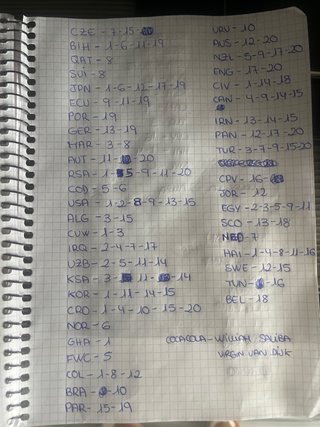 CZE - 7-15
BIH - 1-6-11-19
QAT - 8
SUI - 8
JPN - 1-6-12-17-19
ECU - 9-11-19
POR - 19
GER - 13-19
MAR - 3-8
AUT - 11- 20
RSA - 1-5-9-11-20
COD - 5-6
USA - 1-2-8-9-13-15
ALG - 3-15
CUW - 1-3
IRQ - 2-4-7-17
UZB - 2-5-11-14
KSA - 3- 11- 14
KOR - 1-11-14-15
CRO - 1-4-10-15-20
NOR - 6
GHA - 1
FWC - 5
COL - 1-8-12
BRA - 10
PAR - 15-19
URU - 10
AUS - 12-20
NZL - 5-9-17-20
ENG - 17-20
CIV - 1-14-18
CAN - 4-9-14-15
IRN - 13-14-15
PAN - 12-17-20
TUR - 3-7-9-15-20
CPV - 16
JOR - 12
EGY - 2-3-5-9-11
SCO - 13-18
NED - 7
HAI - 1-4-8-11-16
SWE - 12-15
TUN - 16
BEL - 18
COCACOLA - WILLIAM SALIBA
VIRGIN VAN DIJK